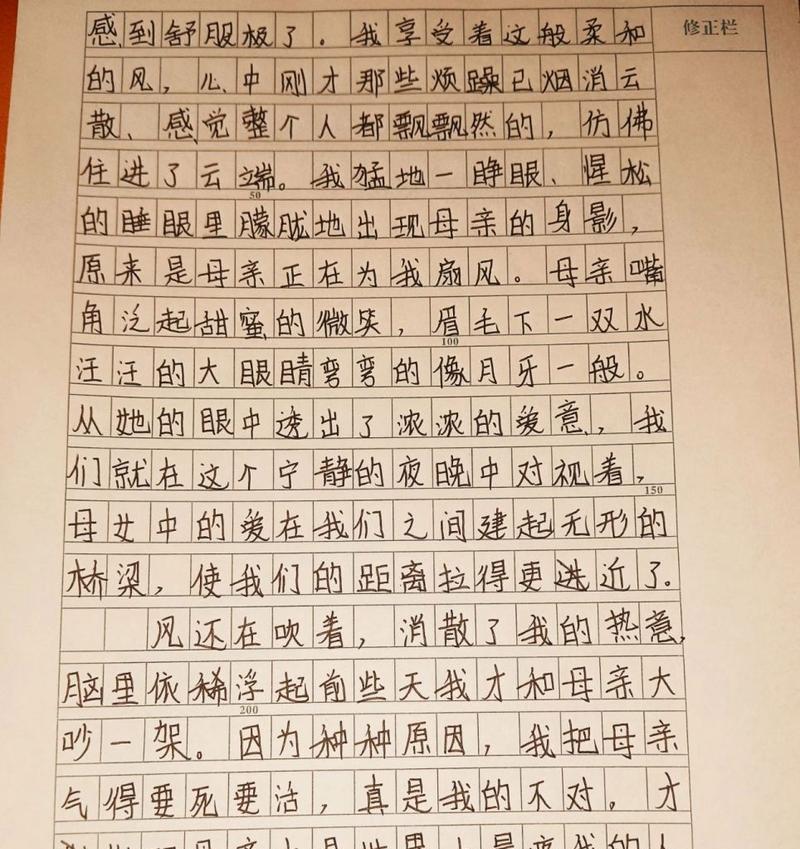 感到舒服极了。我享受着这般柔和
修正栏
的风，心中刚才那些烦躁已烟消云
散、感觉整个人都飘飘然的，仿佛
住进了云端。我猛地一睁眼、惺松
50
的睡眼里朦胧地出现母亲的身影，
原来是母亲正在为我扇风。母亲嘴
角泛起甜蜜的微笑，眉毛下一双水
100
汪汪的大眼睛弯弯的像月牙一般。
从她的眼中透出了浓浓的爱意，我
们就在这个宁静的夜晚中对视着，
150
母女中的爱在我们之间建起无形的
桥梁，使我们的距离拉得更近了。
风还在吹着，消散了我的热意，
脑里依稀浮起前些天我才和母亲大
200
吵一架。因为种种原因，我把母亲
气得要死要活，真是我的不对。才